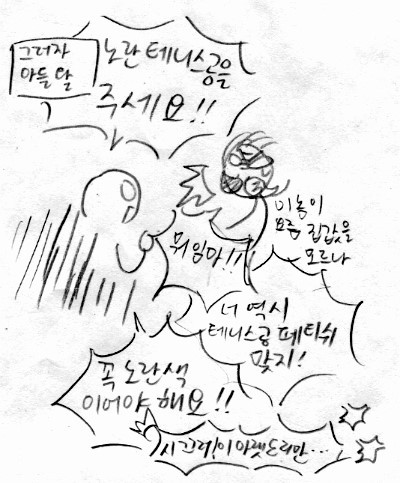 그러자
아들 왈
노란 테니스공을
주세요!!
뭐 임마!!
이놈이
요즘 집값을
모르나
너 역시
테니스공 페티쉬
맞지!
꼭 노란색
이어야 해요!!
시끄러! 이